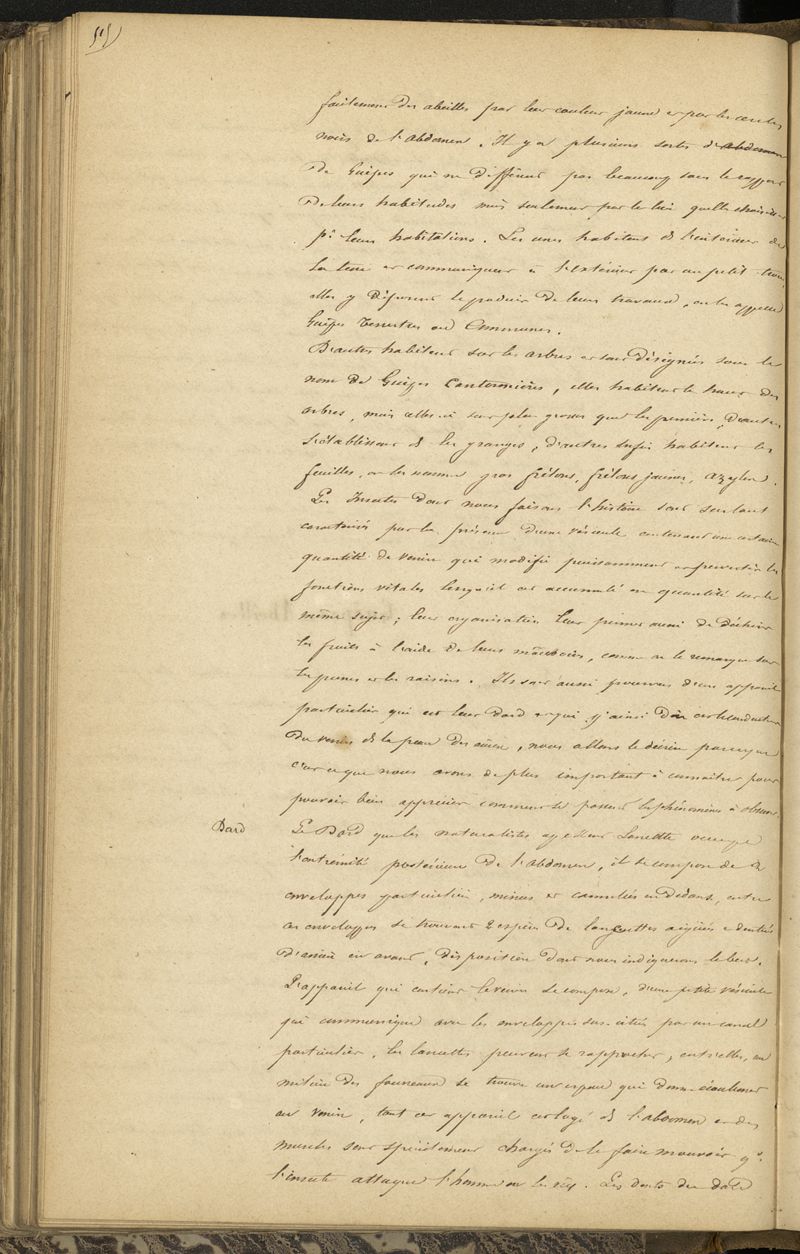 faitement des abeilles par leur couleur jaune et par les cercles
noirs de l'abdomen. Il y a plusieurs sortes d'abdomen
de Guêpes qui ne diffèrent pas beaucoup sous le rapport
de leurs habitudes mais seulement par le lieu quelles choisissent
pr leurs habitations. Les unes habitent ds l'intérieur de
la terre et communiquent à l'extérieur par un petit trou
elles y déposent le produit de leurs travaux, on les appelle
Guêpes Terrestres ou Communes.
D'autres habitent sur les arbres et sont désignées sous le
nom de Guêpes Cantonnières, elles habitent le haut des
arbres, mais celles-ci sont plus grosses que les premières, d'autres
s'établissent ds les granges, d'autres enfin habitent les
feuilles, on les nomme gros frêlons, frêlons jaunes,
Les Insectes dont nous faisons l'histoire sont surtout
caractérisés par la présence d'une vésicule contenant une certaine
quantité de venin qui modifie puissamment et pervertit les
fonctions vitales lorsqu'il est accumulé en quantité sur le
même sujet; leur organisation leur permet aussi de déchirer
les fruits à l'aide de leurs mâchoires, comme on le remarque sur
les prunes et les raisins. Ils sont aussi pourvus d'un appareil
particulier qui est leur dard et qui est le conducteur
du venin ds la peau des, nous allons le décrire parceque
c'est ce que nous avons de plus important à connaitre pour
pouvoir bien apprécier comment se passent les phénomènes à observer
Dard
Le Dard que les naturalistes appellent Lancette occupe
l'extrémité postérieure de l'abdomen, il se compose de 2
enveloppes particulières, minces et cannelées en dedans, entre
ces enveloppes se trouvent 2 espèces de languettes aigües et dentées
d'arrière en avant, disposition dont nous indiquerons le but.
L'appareil qui contient le venin se compose, d'une petite vésicule
qui communique avec les enveloppes sus-citées par un canal
particulier, les lancettes peuvent se rapprocher, entr'elles, au
milieu des fourreaux se trouve un espace qui donne écoulement
au venin, tout cet appareil est logé ds l'abdomen et des
muscles sont spécialement chargés de le faire mouvoir qd
l'insecte attaque l'homme ou les. Les dents du dard